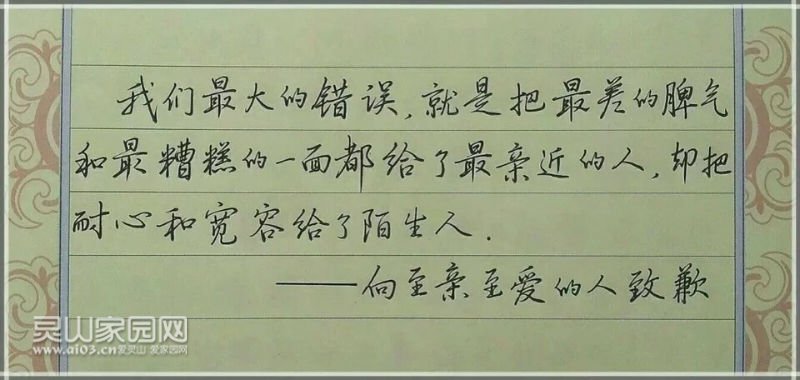 我们最大的错误,就是把最差的脾气
和最糟糕的一面都给了最亲近的人,却把
耐心和宽容给了陌生人.
——向至亲至爱的人致歉
灵山家园网
www.ai03.cn爱灵山 爱家园网